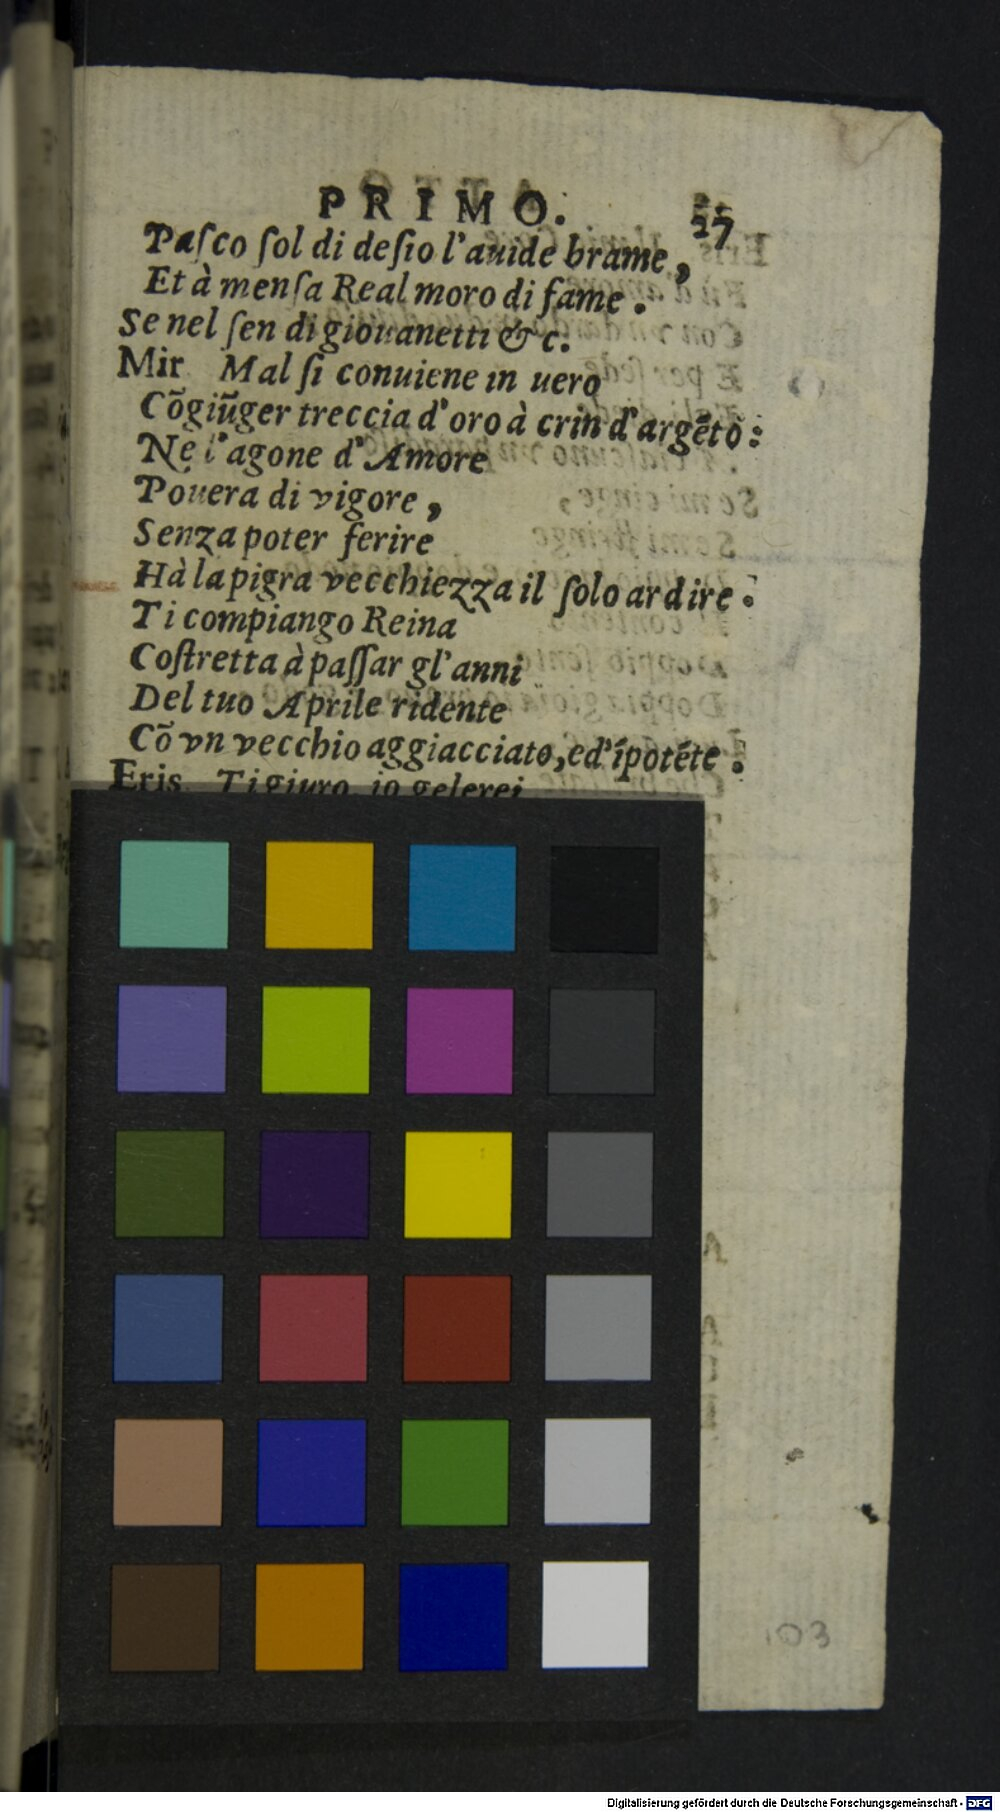 PRIMO. 27
Pasco sol di desio l'auide brame,
Et à mensa Real moro di fame.
Se nel sen di giouanetti & c.
Mir Mal si conuiene in uero
Cõgiũger treccia d'oro à crin d'argẽto:
Ne l'agone d'Amore
Pouera di vigore,
Senza poter ferire
Hà la pigra vecchiezza il solo ardire.
Ti compiango Reina
Costretta à passar gl'anni
Del tuo Aprile ridente
Cõ vn vecchio aggiacciato, ed'ĩpotẽte.
Eris. Ti giuro io gelerei
103
Digitalisierung gefördert durch die Deutsche Forschungsgemeinschaft - DFG